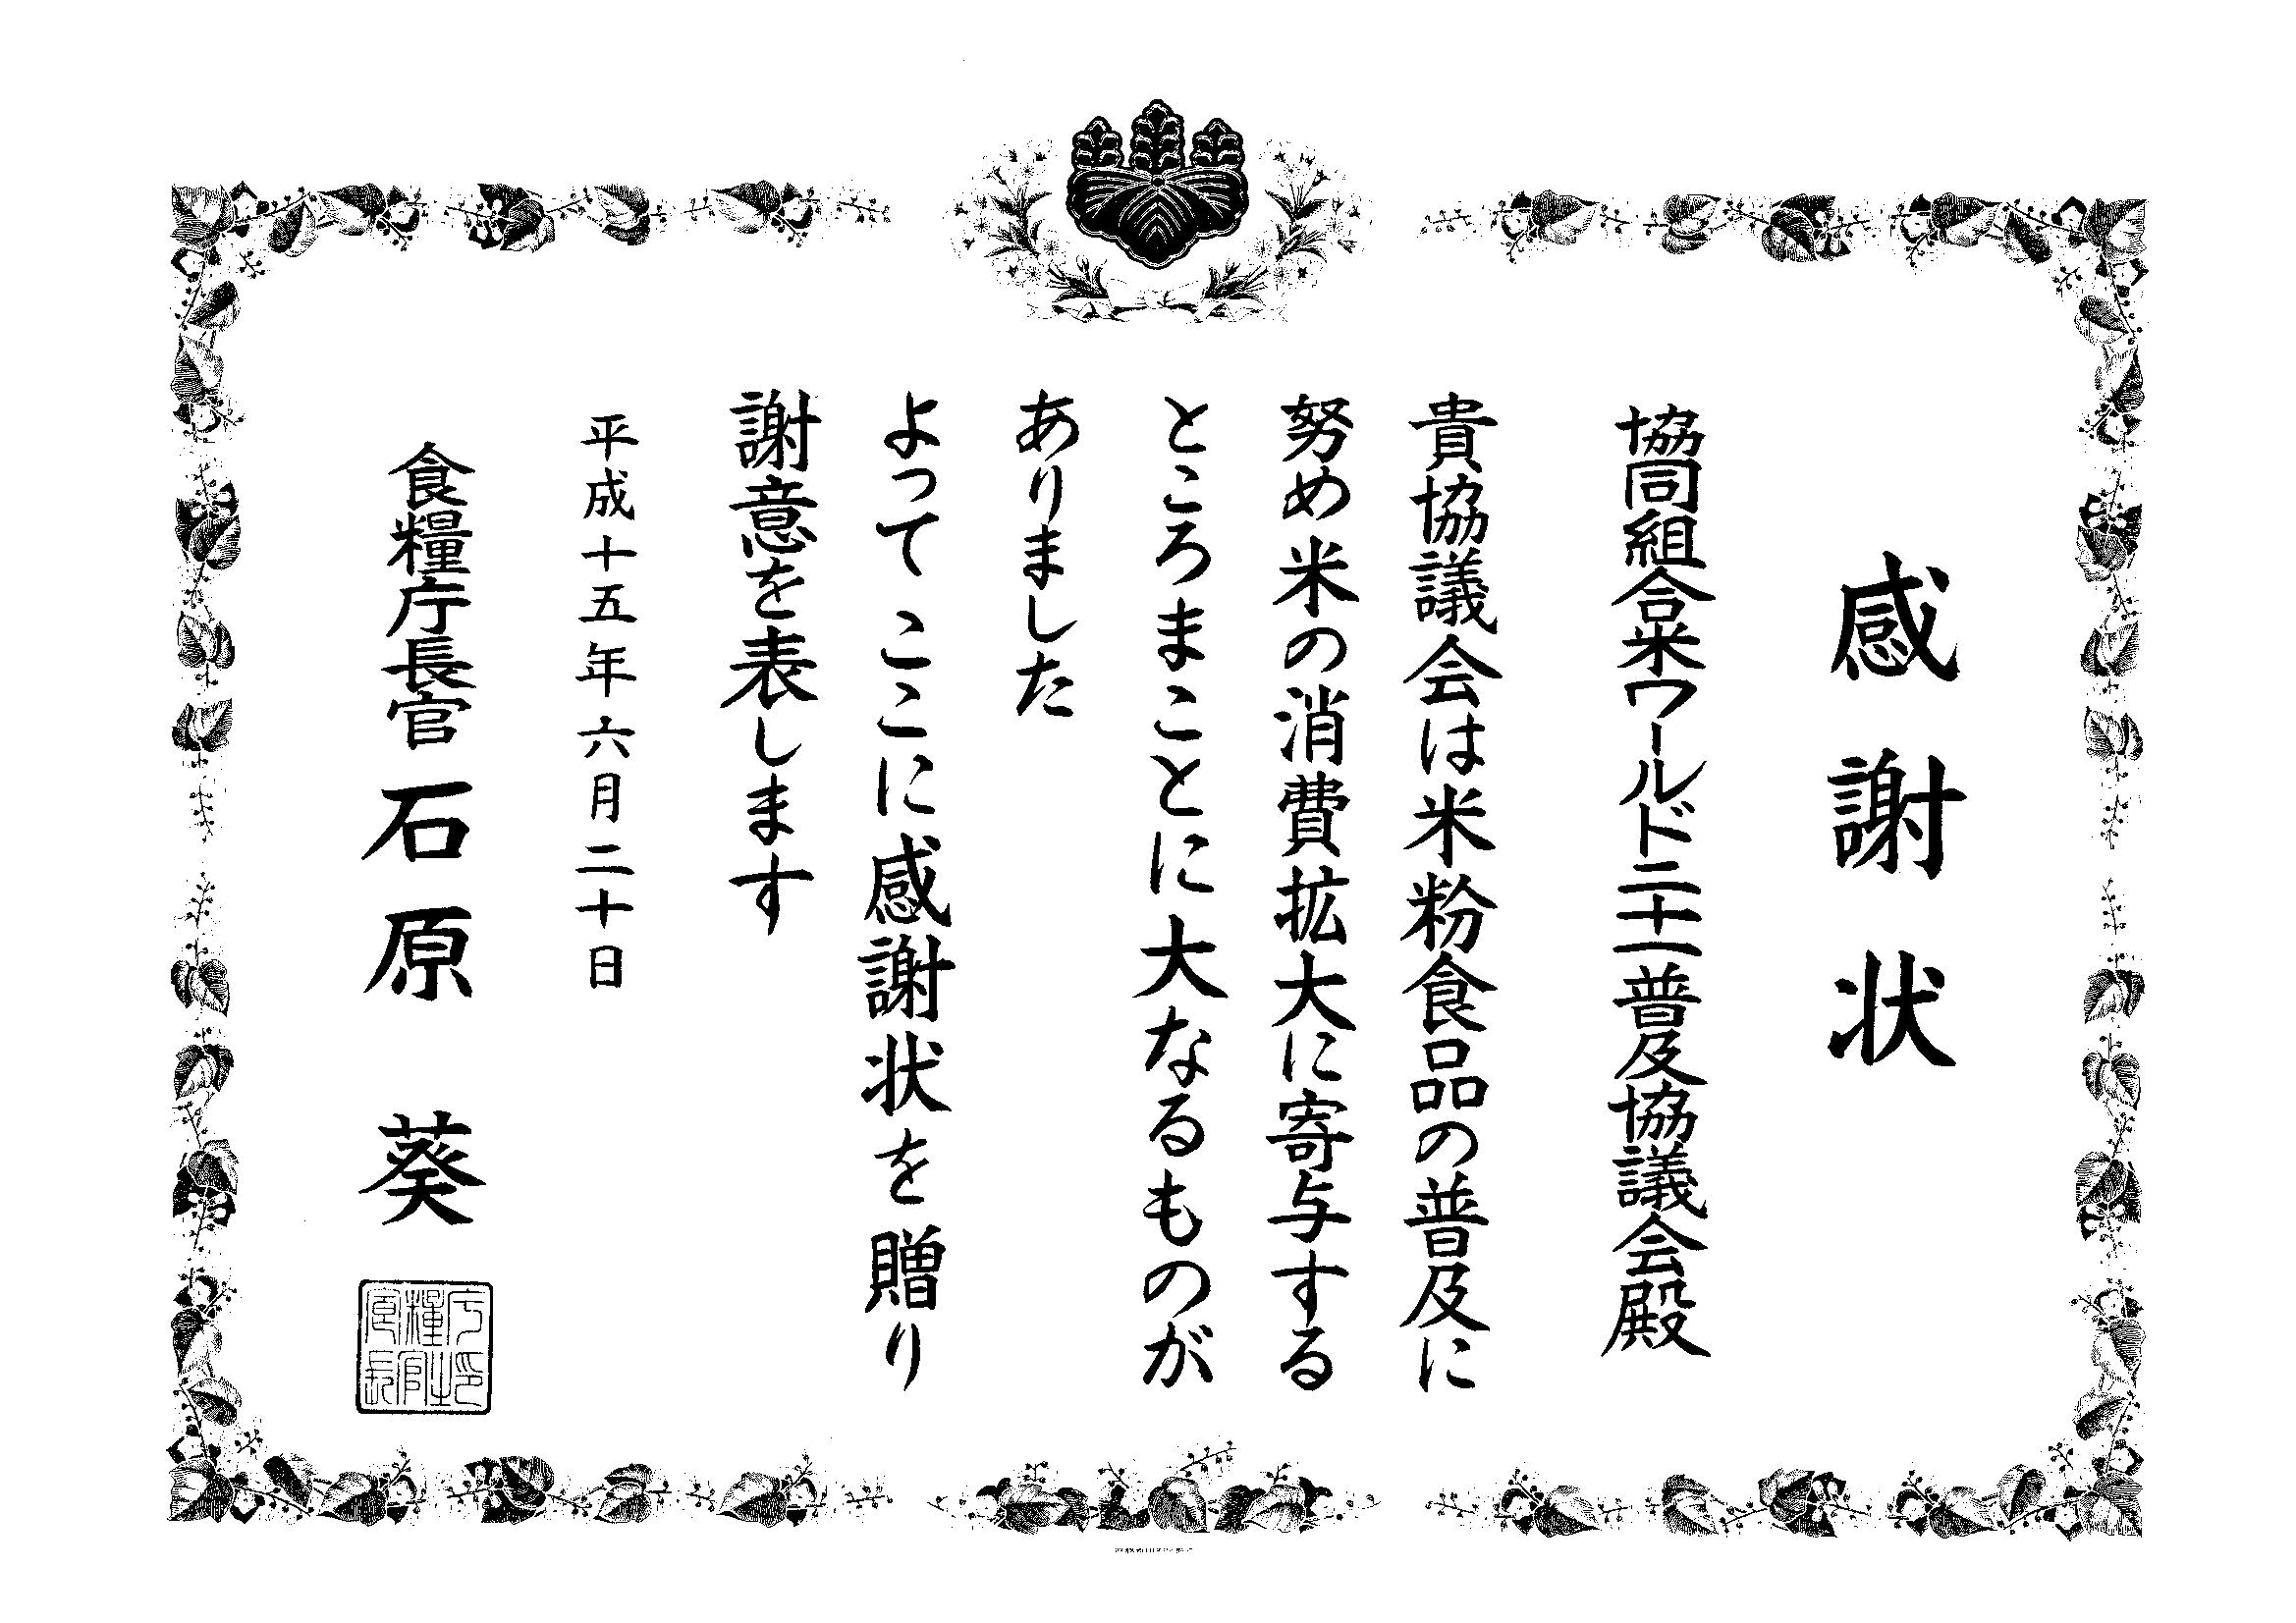 感謝状
協同組合米ワールド二十一普及協議会殿
貴協議会は米粉食品の普及に
努め米の消費拡大に寄与する
ところまことに大なるものが
ありました
よってここに感謝状を贈り
謝意を表します
平成十五年六月二十日
食糧庁長官 石原 葵